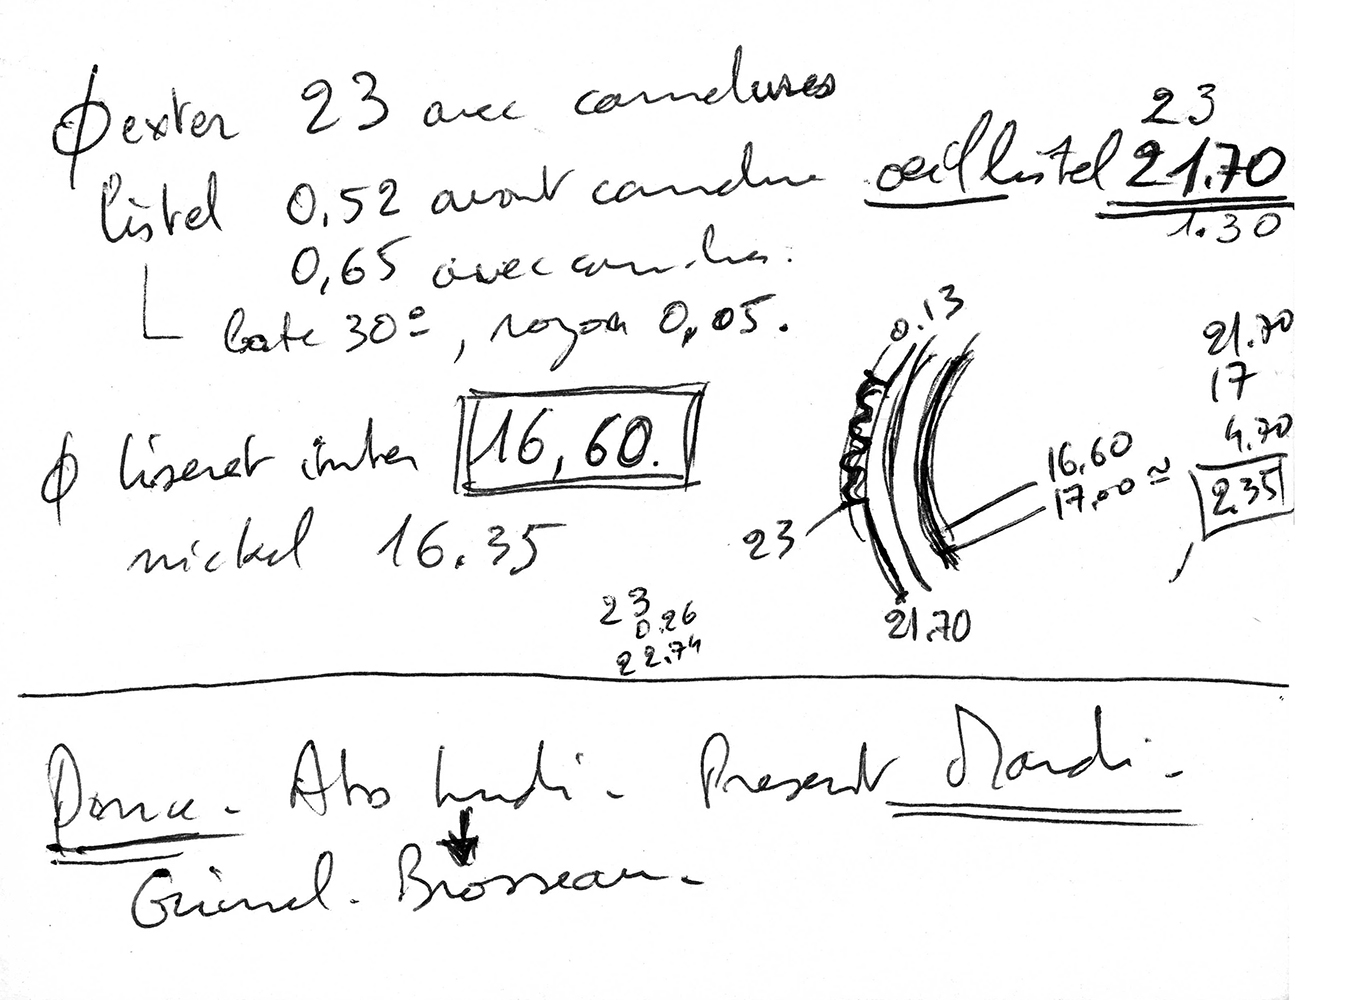 ϕ exter 23 avec cannelures
listel 0,52 avant cannelure
0,65 avec
bate 30°, rayon 0,05.
oeil listel 23
21.70
1.30
ϕ liseret inter 16,60.
nickel 16.35
23
0.26
22.74
0.13
23
21.70
16.60
17,00 ≃
21.70
17
4.70
2.35
Abs lundi. Present Mardi.
Brosseau.